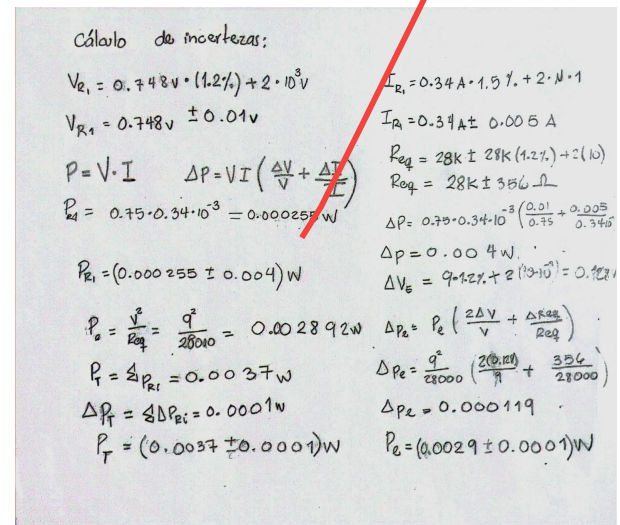 Cálculo de incertezas:
V_R₁ = 0.748v • (1.2%) + 2 • 10³v
V_R₁ = 0.748v ± 0.01v
P = V • I ΔP = VI (ΔV/V + ΔI/I)
P_R1 = 0.75 • 0.34 • 10⁻³ = 0.000255 W
P_R₁ = (0.000255 ± 0.004) W
P_e = V²/Req = 9²/28010 = 0.002892w
P_T = ΣP_Ri = 0.0037w
ΔP_T = ΣΔP_Ri = 0.0001w
P_T = (0.0037 ± 0.0001)W
I_R₁ = 0.34A • 1.5% + 2 •
I_R₁ = 0.34A ± 0.005 A
Req = 28K ± 28K (1.2%) + 2(10)
Req = 28K ± 356 Ω
ΔP = 0.75 • 0.34 • 10⁻³ (0.01/0.75 + 0.005/0.34
Δp = 0.004 w.
ΔV_E = 9 • 1.2% + 2
ΔP_e = P_e (2ΔV/V + ΔReq/Req)
ΔPe = 9²/28000 (2(0.128)/9 + 356/28000)
ΔPe = 0.000119
Pe = (0.0029 ± 0.0001)W